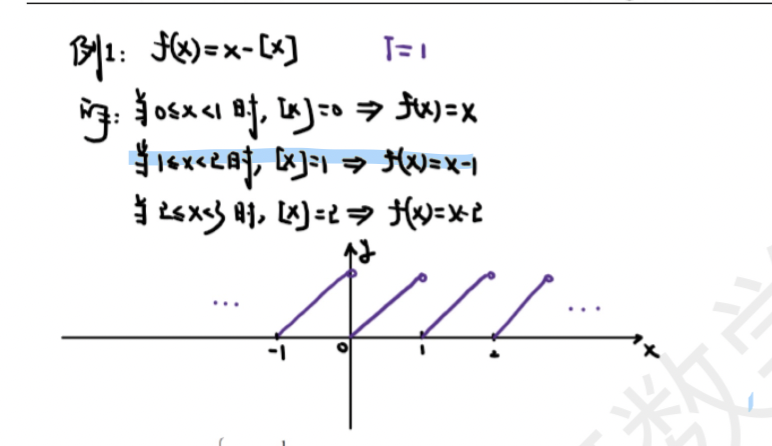 例1: f(x)=x-[x] T=1
译: 当0≤x<1时, [x]=0 ⇒ f(x)=x
当1≤x<2时, [x]=1 ⇒ f(x)=x-1
当2≤x<3时, [x]=2 ⇒ f(x)=x-2
y
... ...
-1 0 1 2 x
数学